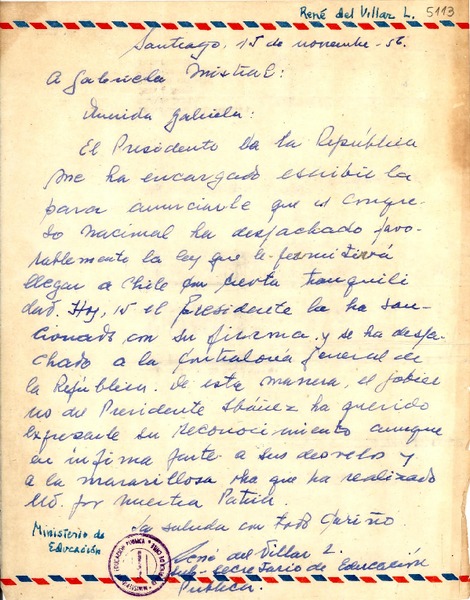 René del Villar L. 5113
Santiago, 15 de noviembre - 56.
A Gabriela Mistral:
Querida Gabriela:
El Presidente de la República
me ha encargado escribirle
para anunciarle que el Congre-
so Nacional ha despachado favo-
rablemente la ley que le permitirá
llegar a Chile con cierta tranquili
dad. Hoy, 15 el Presidente la ha san-
cionado con su firma y se ha despa-
chado a la Contraloría General de
la República. De esta manera, el gobier
no del Presidente Ibáñez ha querido
expresarle su reconocimiento aunque
en infima parte a sus desvelos y
a la maravillosa obra que ha realizado
Ud. por nuestra Patria.
La saluda con todo cariño.
Ministerio de
Educación
René del Villar L.
Sub-Secretario de Educación
Pública.